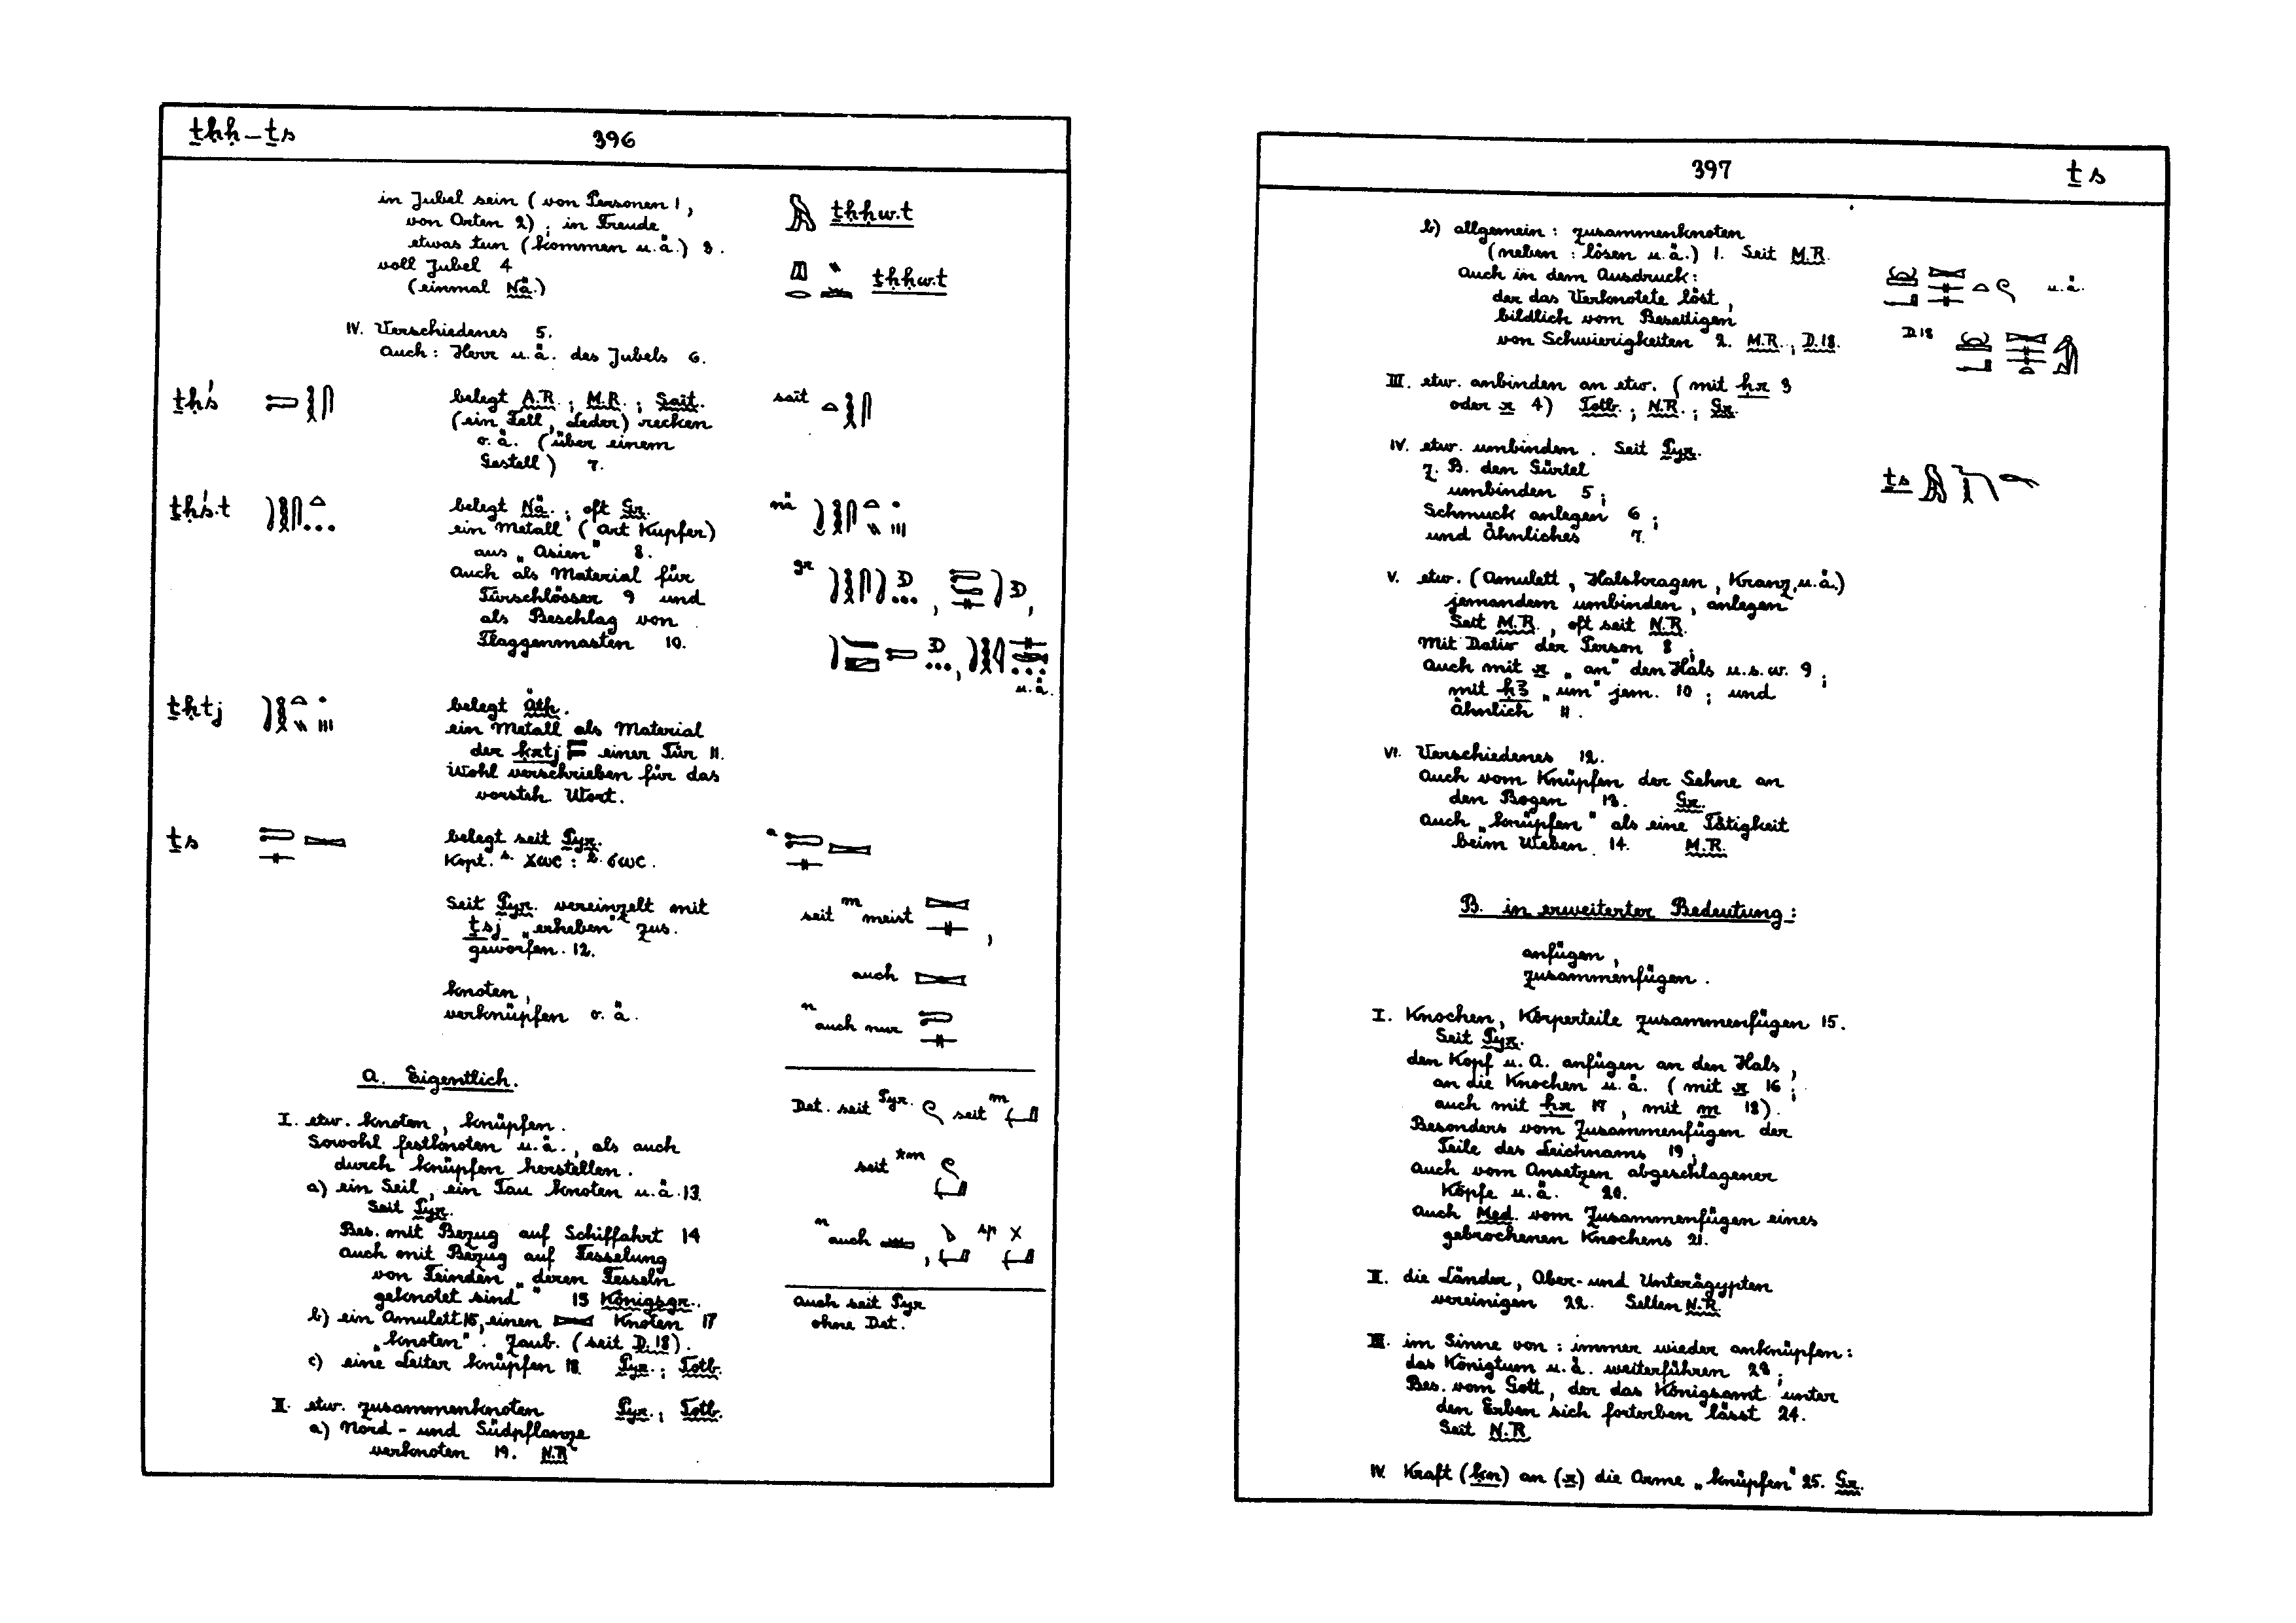 ṯḥḥ – ṯs
396
in Jubel sein (von Personen 1,
von Orten 2); in Freude
etwas tun (kommen u.ä.) 3.
voll Jubel 4
(einmal Nä.)
ṯḥḥw.t
ṯḥḥw.t
IV. Verschiedenes 5.
Auch: Herr u.ä. des Jubels 6.
ṯḥś
belegt A.R.; M.R.; Sait.
(ein Fell, Leder) recken
o.ä. (über einem
Gestell) 7.
sait
ṯḥś.t
belegt Nä.; oft Gr.
ein Metall (Art Kupfer)
aus „Asien" 8.
Auch als Material für
Türschlösser 9 und
als Beschlag von
Flaggenmasten 10.
nä
gr
u.ä.
ṯḥtj
belegt Äth.
ein Metall als Material
der einer Tür 11.
Wohl verschrieben für das
vorsteh. Wort.
ṯs
belegt seit Pyr.
Kopt. S. ϫωc : B. ϭωc.
Seit Pyr. vereinzelt mit
ṯsj „erheben" zus.
geworfen. 12.
knoten,
verknüpfen o.ä.
a
seit m meist
,
auch
n auch nur
A. Eigentlich.
I. etw. knoten, knüpfen.
Sowohl festknoten u.ä., als auch
durch knüpfen herstellen.
a) ein Seil, ein Tau knoten u.ä. 13.
Seit Pyr.
Bes. mit Bezug auf Schiffahrt 14
auch mit Bezug auf Fesselung
von Feinden „deren Fesseln
geknotet sind" 15 Königsgr.
b) ein Amulett 16, einen Knoten 17
„knoten". Zaub. (seit D.18).
c) eine Leiter knüpfen 18. Pyr.; Totb.
II. etw. zusammenknoten Pyr.; Totb.
a) Nord- und Südpflanze
verknoten 19. N.R.
Det. seit Pyr. seit m
seit *m
n auch , sp
auch seit Pyr
ohne Det.
397
ṯs
b) allgemein: zusammenknoten
(neben: lösen u.ä.) 1. Seit M.R.
Auch in dem Ausdruck:
der das Verknotete löst,
bildlich vom Beseitigen
von Schwierigkeiten 2. M.R.; D.18.
u.ä.
D.18
III. etw. anbinden an etw. (mit ḥr 3
oder r 4) Totb.; N.R.; Gr.
IV. etw. umbinden. Seit Pyr.
z. B. den Gürtel
umbinden 5;
Schmuck anlegen 6;
und Ähnliches 7.
ṯs
V. etw. (Amulett, Halskragen, Kranz, u.ä.)
jemandem umbinden, anlegen
Seit M.R., oft seit N.R.
Mit Dativ der Person 8;
Auch mit r „an" den Hals u.s.w. 9;
mit ḥꜣ „um" jem. 10; und
ähnlich 11.
VI. Verschiedenes 12.
Auch vom Knüpfen der Sehne an
den Bogen 13. Gr.
Auch „knüpfen" als eine Tätigkeit
beim Weben 14. M.R.
B. in erweiterter Bedeutung:
anfügen,
zusammenfügen.
I. Knochen, Körperteile zusammenfügen 15.
Seit Pyr.
den Kopf u.A. anfügen an den Hals,
an die Knochen u.ä. (mit r 16;
auch mit ḥr 17, mit m 18).
Besonders vom Zusammenfügen der
Teile des Leichnams 19;
Auch vom Ansetzen abgeschlagener
Köpfe u.ä. 20.
Auch Med. vom Zusammenfügen eines
gebrochenen Knochens 21.
II. die Länder, Ober- und Unterägypten
vereinigen 22. Selten N.R.
III. im Sinne von: immer wieder anknüpfen:
das Königtum u.ä. weiterführen 23;
Bes. vom Gott, der das Königsamt unter
den Erben sich forterben lässt 24.
Seit N.R.
IV. Kraft (ḳn) an (r) die Arme „knüpfen" 25. Gr.